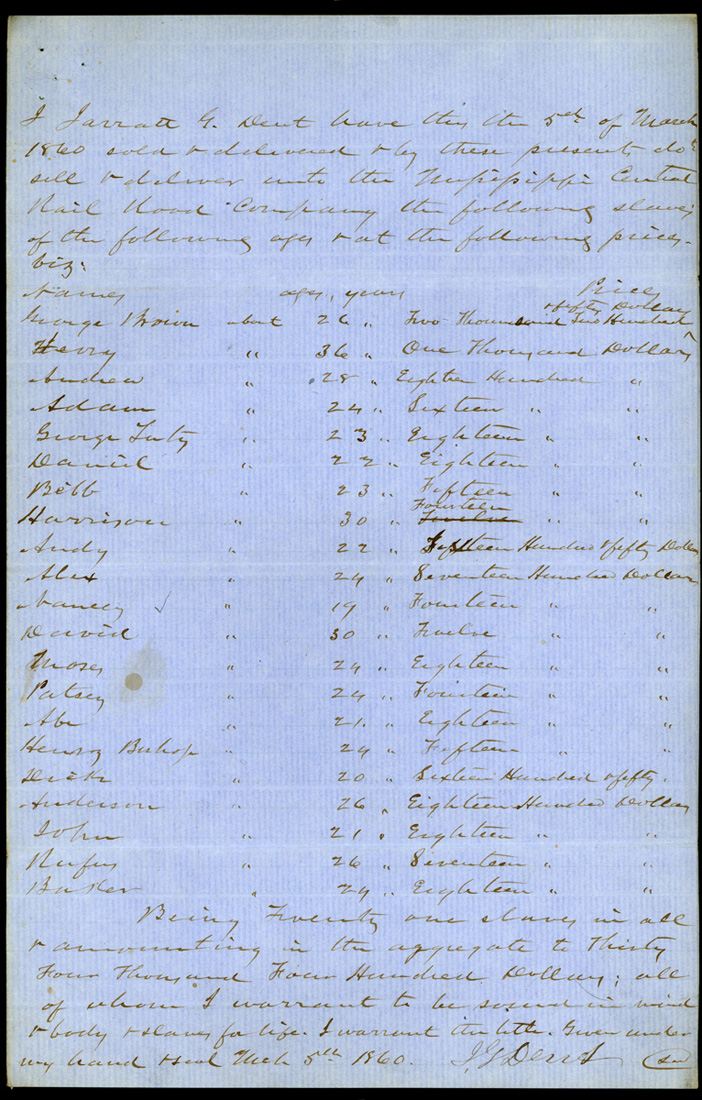 I Jarratt G. Dent have this the 5th of March
1860 sold & delivered & by these presents do
sell & deliver unto the Mississippi Central
Rail Road Company the following slaves
of the following ages & at the following prices.
viz:
Names ages, years Prices
& fifty Dollars
George Brown about 26 " Two Thousand Two Hundred ^
Henry " 36 " One Thousand Dollars
Andrew " 28 " Eighteen Hundred "
Adam " 24 " Sixteen " "
George " 23 " Eighteen " "
Daniel " 22 " Eighteen " "
Bibb " 23 " Fifteen " "
Fourteen
Harrison " 30 " Twelve " "
Andy " 22 " Fifteen Hundred & fifty Dollars
Alex " 24 " Seventeen Hundred Dollars
Nancy " 19 " Fourteen " "
David " 30 " Twelve " "
Moses " 24 " Eighteen " "
Patsey " 24 " Fourteen " "
Abe " 21 " Eighteen " "
Henry Bishop " 24 " Fifteen " "
Dick " 20 " Sixteen Hundred & fifty "
Anderson " 26 " Eighteen Hundred Dollars
John " 21 " Eighteen " "
Rufus " 26 " Seventeen " "
Baker " 24 " Eighteen " "
Being Twenty one slaves in all
& amounting in the aggregate to Thirty
Four Thousand Four Hundred Dollars; all
of whom I warrant to be sound in mind
& body & slaves for life. I warrant the title. Given under
my hand & seal Mch 5th 1860. J. G. Dent Seal